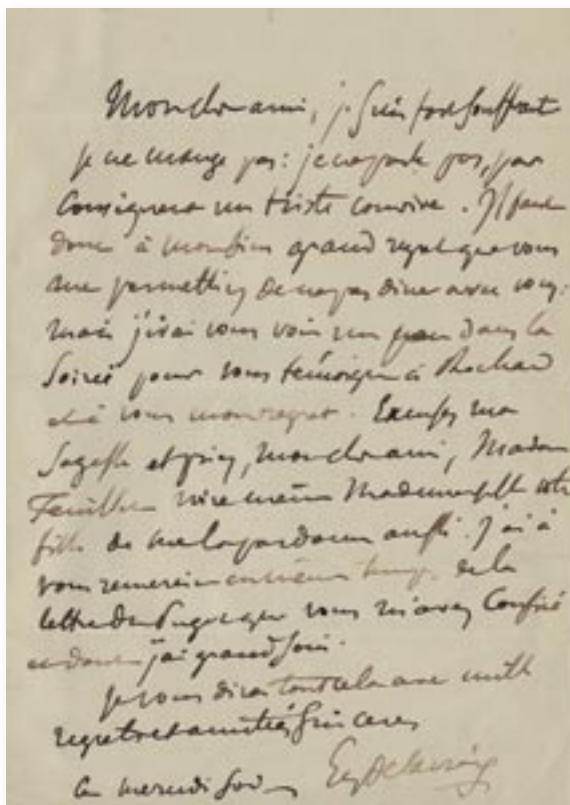 Mon cher ami, je suis fort souffrant
je ne mange pas : je ne parle pas, par
conséquent un triste convive. Il faut
donc à mon bien grand regret que vous
me permettiez de ne pas diner avec vous :
mais j'irai vous voir un peu dans la
soirée pour vous témoigner à
et à vous mon regret. Excusez ma
sagesse et priez, mon cher ami, Madame
Feuillet votre fille de me la pardonner aussi. J'ai à
vous remercier en même temps de la
lettre du que vous m'avez confiée
et dont j'ai grand soin.
Je vous dirai tout cela avec mille
regrets et amitiés sincères
Ce mercredi soir Eug Delacroix